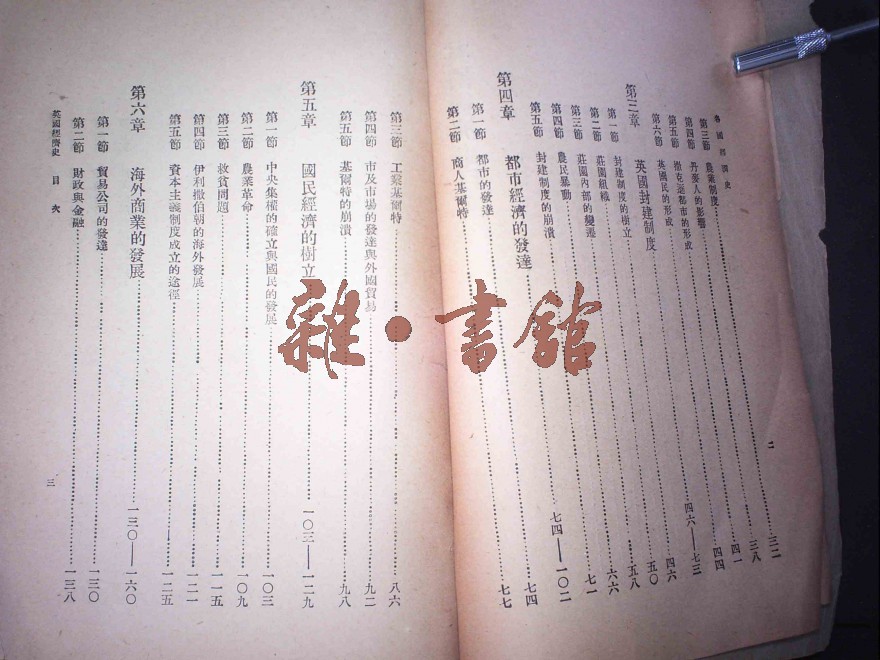 英國經濟史
二
第三節 農業制度 三二
第四節 丹麥人的影響 三八
第五節 撒克遜都市的形成 四一
第六節 英國民的形成 四四
第三章 英國封建制度 四六——七三
第一節 封建制度的樹立 四六
第二節 莊園組織 五〇
第三節 莊園內部的變遷 五八
第四節 農民暴動 六六
第五節 封建制度的崩潰 七一
第四章 都市經濟的發達 七四——一〇二
第一節 都市的發達 七四
第二節 商人基爾特 七七
第三節 工業基爾特 八六
第四節 市及市場的發達與外國貿易 九二
第五節 基爾特的崩潰 九八
第五章 國民經濟的樹立 一〇三——一二九
第一節 中央集權的確立與國民的發展 一〇三
第二節 農業革命 一〇九
第三節 救貧問題 一一五
第四節 伊利撒伯朝的海外發展 一二一
第五節 資本主義制度成立的途徑 一二五
第六章 海外商業的發展 一三〇——一六〇
第一節 貿易公司的發達 一三〇
第二節 財政與金融 一三八
英國經濟史 目次
三
雜·書館